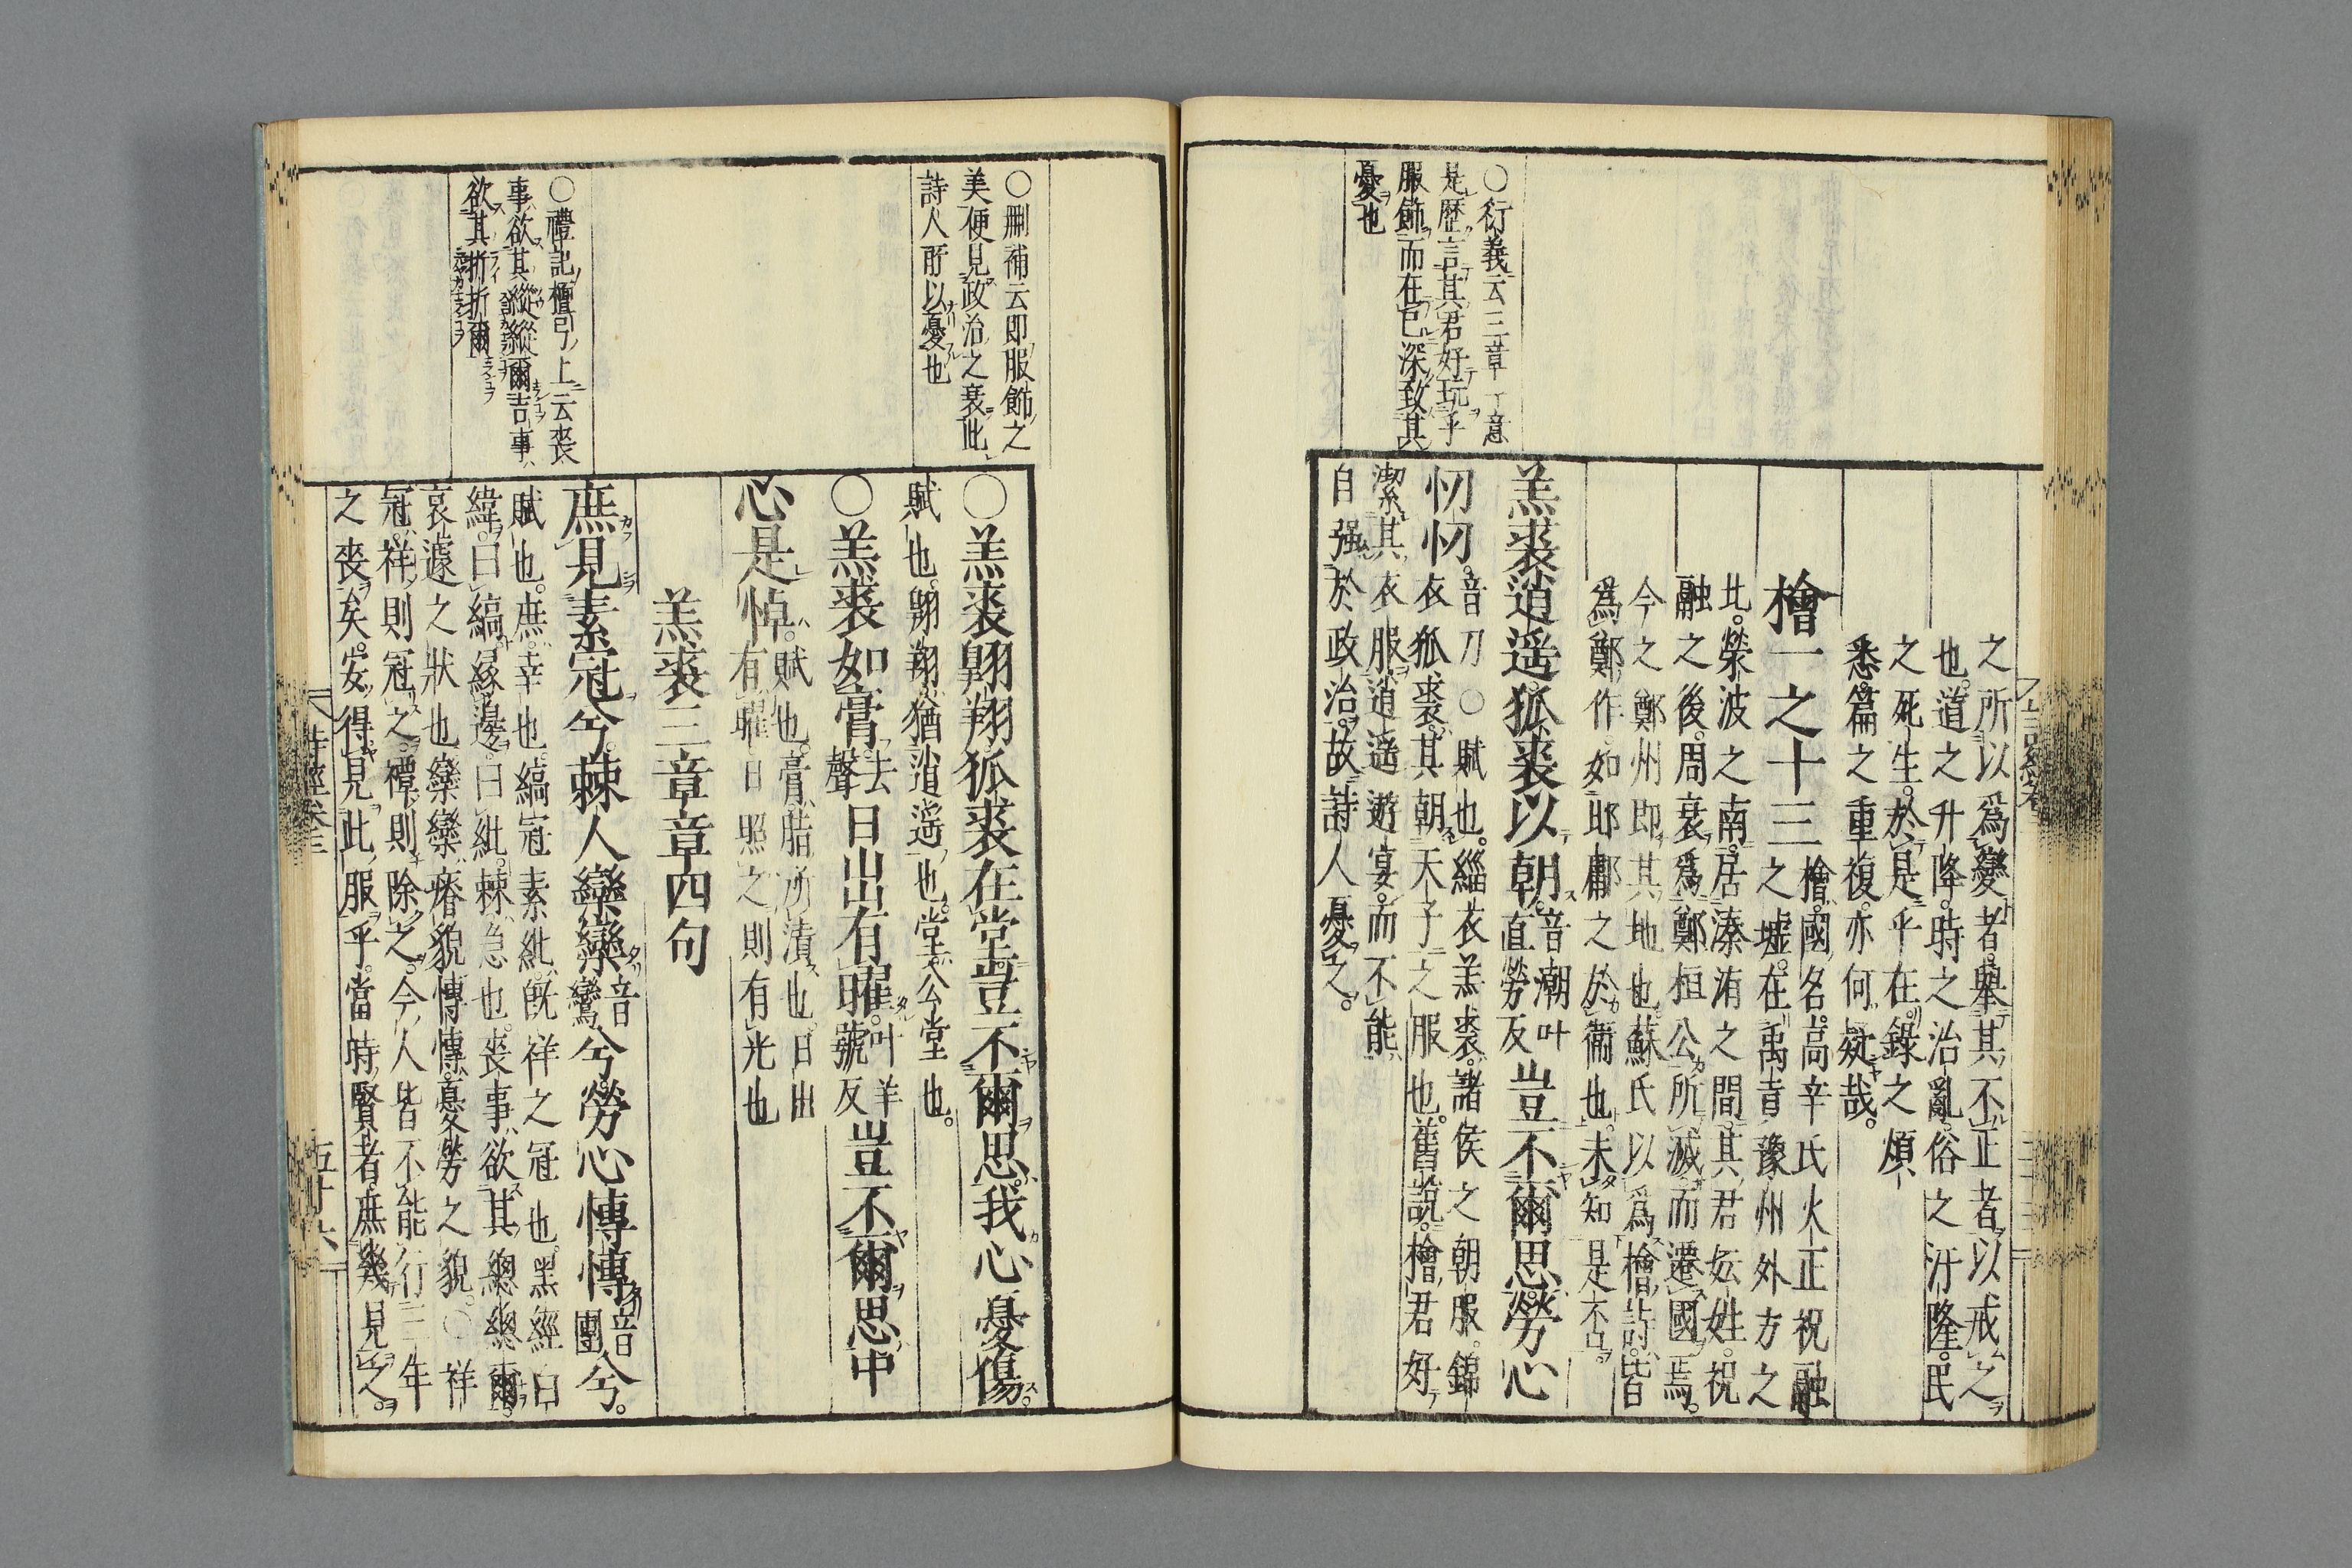 之所以爲變者。擧其不正者以戒之
也。道之升降。時之治亂。俗之汙隆。民
之死生。於是乎在。錄之煩
悉。篇之重複。亦何疑哉。
檜一之十三
檜。國名。高辛氏火正祝融
之墟。在禹貢豫州外方之
北。滎波之南。居溱洧之間。其君妘姓。祝
融之後。周衰。爲鄭桓公所滅而遷國焉。
今之鄭州即其地也。蘇氏以爲檜詩。皆
爲鄭作。如邶鄘之於衞也。未知是否。
羔裘逍遥。狐裘以朝。音潮叶直勞反豈不爾思。勞心
忉忉。音刀○賦也。緇衣羔裘。諸侯之朝服。錦
衣狐裘。其朝天子之服也。舊說。檜君好
潔其衣服。逍遙遊宴。而不能
自强於政治。故詩人憂之。
○衍義云三章一意
是歴言其君好玩乎
服飾而在已深致其
憂也
○羔裘翺翔。狐裘在堂。豈不爾思。我心憂傷。
賦也。翺翔。猶逍遥也。堂。公堂也。
○羔裘如膏。去聲日出有曜。叶羊號反豈不爾思。中
心是悼。賦也。膏。脂所漬也。日出
有曜。日照之則有光也
羔裘三章章四句
庶見素冠兮。棘人欒欒音鸞兮。勞心慱慱音團兮。
賦也。庶。幸也。縞冠素紕。旣祥之冠也。黑經白
緯曰縞。緣邊曰紕。棘。急也。喪事欲其總總爾。
哀遽之狀也。欒欒。瘠貌。慱慱。憂勞之貌。○祥
冠。祥則冠之。禫則除之。今人皆不能行三年
之喪矣。安得見此服乎。當時賢者。庶幾見之。
○刪補云即服飾之
美便見政治之衰此
詩人所以憂也
○禮記檀弓上云喪
事欲其縱縱爾吉事
欲其折折爾
詩經卷三
五十六